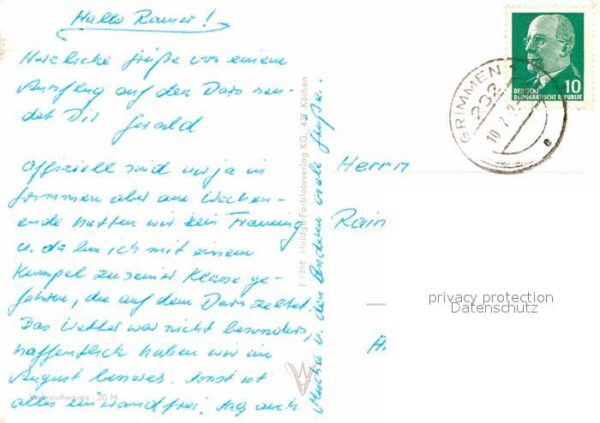 Hallo Rainer!
Herzliche Grüße von einem
Ausflug auf den Dars sen-
det Dir Gerald
Offiziell sind wir ja in
Grimmen aber am Wochen-
ende hatten wir kein Training
u. da bin ich mit einem
Kumpel zu seiner Klasse ge-
fahren, die auf dem Dars zeltet.
Das Wetter war nicht besonders,
hoffentlich haben wir im
August besseres. Sonst ist
alles einwandfrei. Sag auch
u. den Andern viele Grüße.
F 1268 Heldge-Farbfotoverlag KG, 437 Köthen
Verbraucherpreis -,20 M
GRIMMEN
232
10.7.
e
10
DEUTSCHE
DEMOKRATISCHE REPUBLIK
Herrn
Rain
A.
privacy protection
Datenschutz